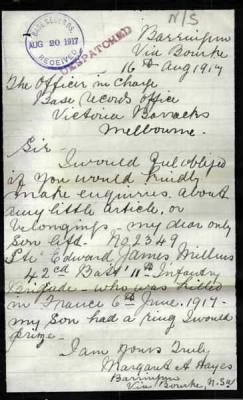 N/S
BASE RECORDS
AUG 20 1917
RECEIVED
DESPATCHED
Barringun
Via Bourke
16th Aug 1917
The Officer in Charge
Base Records Office
Victoria Barracks
Melbourne.
Sir
I would feel obliged
if you would kindly
make enquiries about
any little article, or
belongings my dear only
Son Std. No 2349
Pte Edward James Millins
42nd Batt 11th Infantry
Brigade - who was killed
in France 6th June. 1917 -
my Son had a ring I would
prize -
I am Yours Truly
Margaret A Hayes
Barringun
Via Bourke. N.S.W